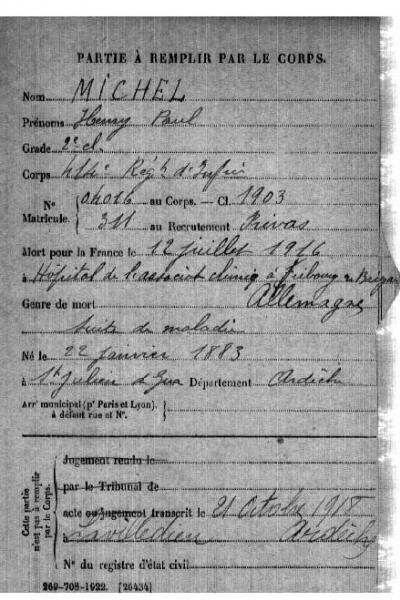 PARTIE À REMPLIR PAR LE CORPS.
Nom MICHEL
Prénoms Henry Paul
Grade 2e cl.
Corps Régt d'Infie
No 04016 au Corps. — Cl. 1903
Matricule. 311 au Recrutement Privas
Mort pour la France le 12 juillet 1916
à Hôpital de l'associat clinig à Fribourg en Brisgau
Allemagne
Genre de mort
suite de maladie
Né le 22 janvier 1883
à St Julien d Gua Département Ardèche
Arrt municipal (pr Paris et Lyon),
à défaut rue et No.
Cette partie
n'est pas à remplir
par le Corps.
Jugement rendu le
par le Tribunal de
acte ou jugement transcrit le 21 Octobre 1918
Lavilledieu Ardèche
No du registre d'état civil
269-708-1922. [26434]